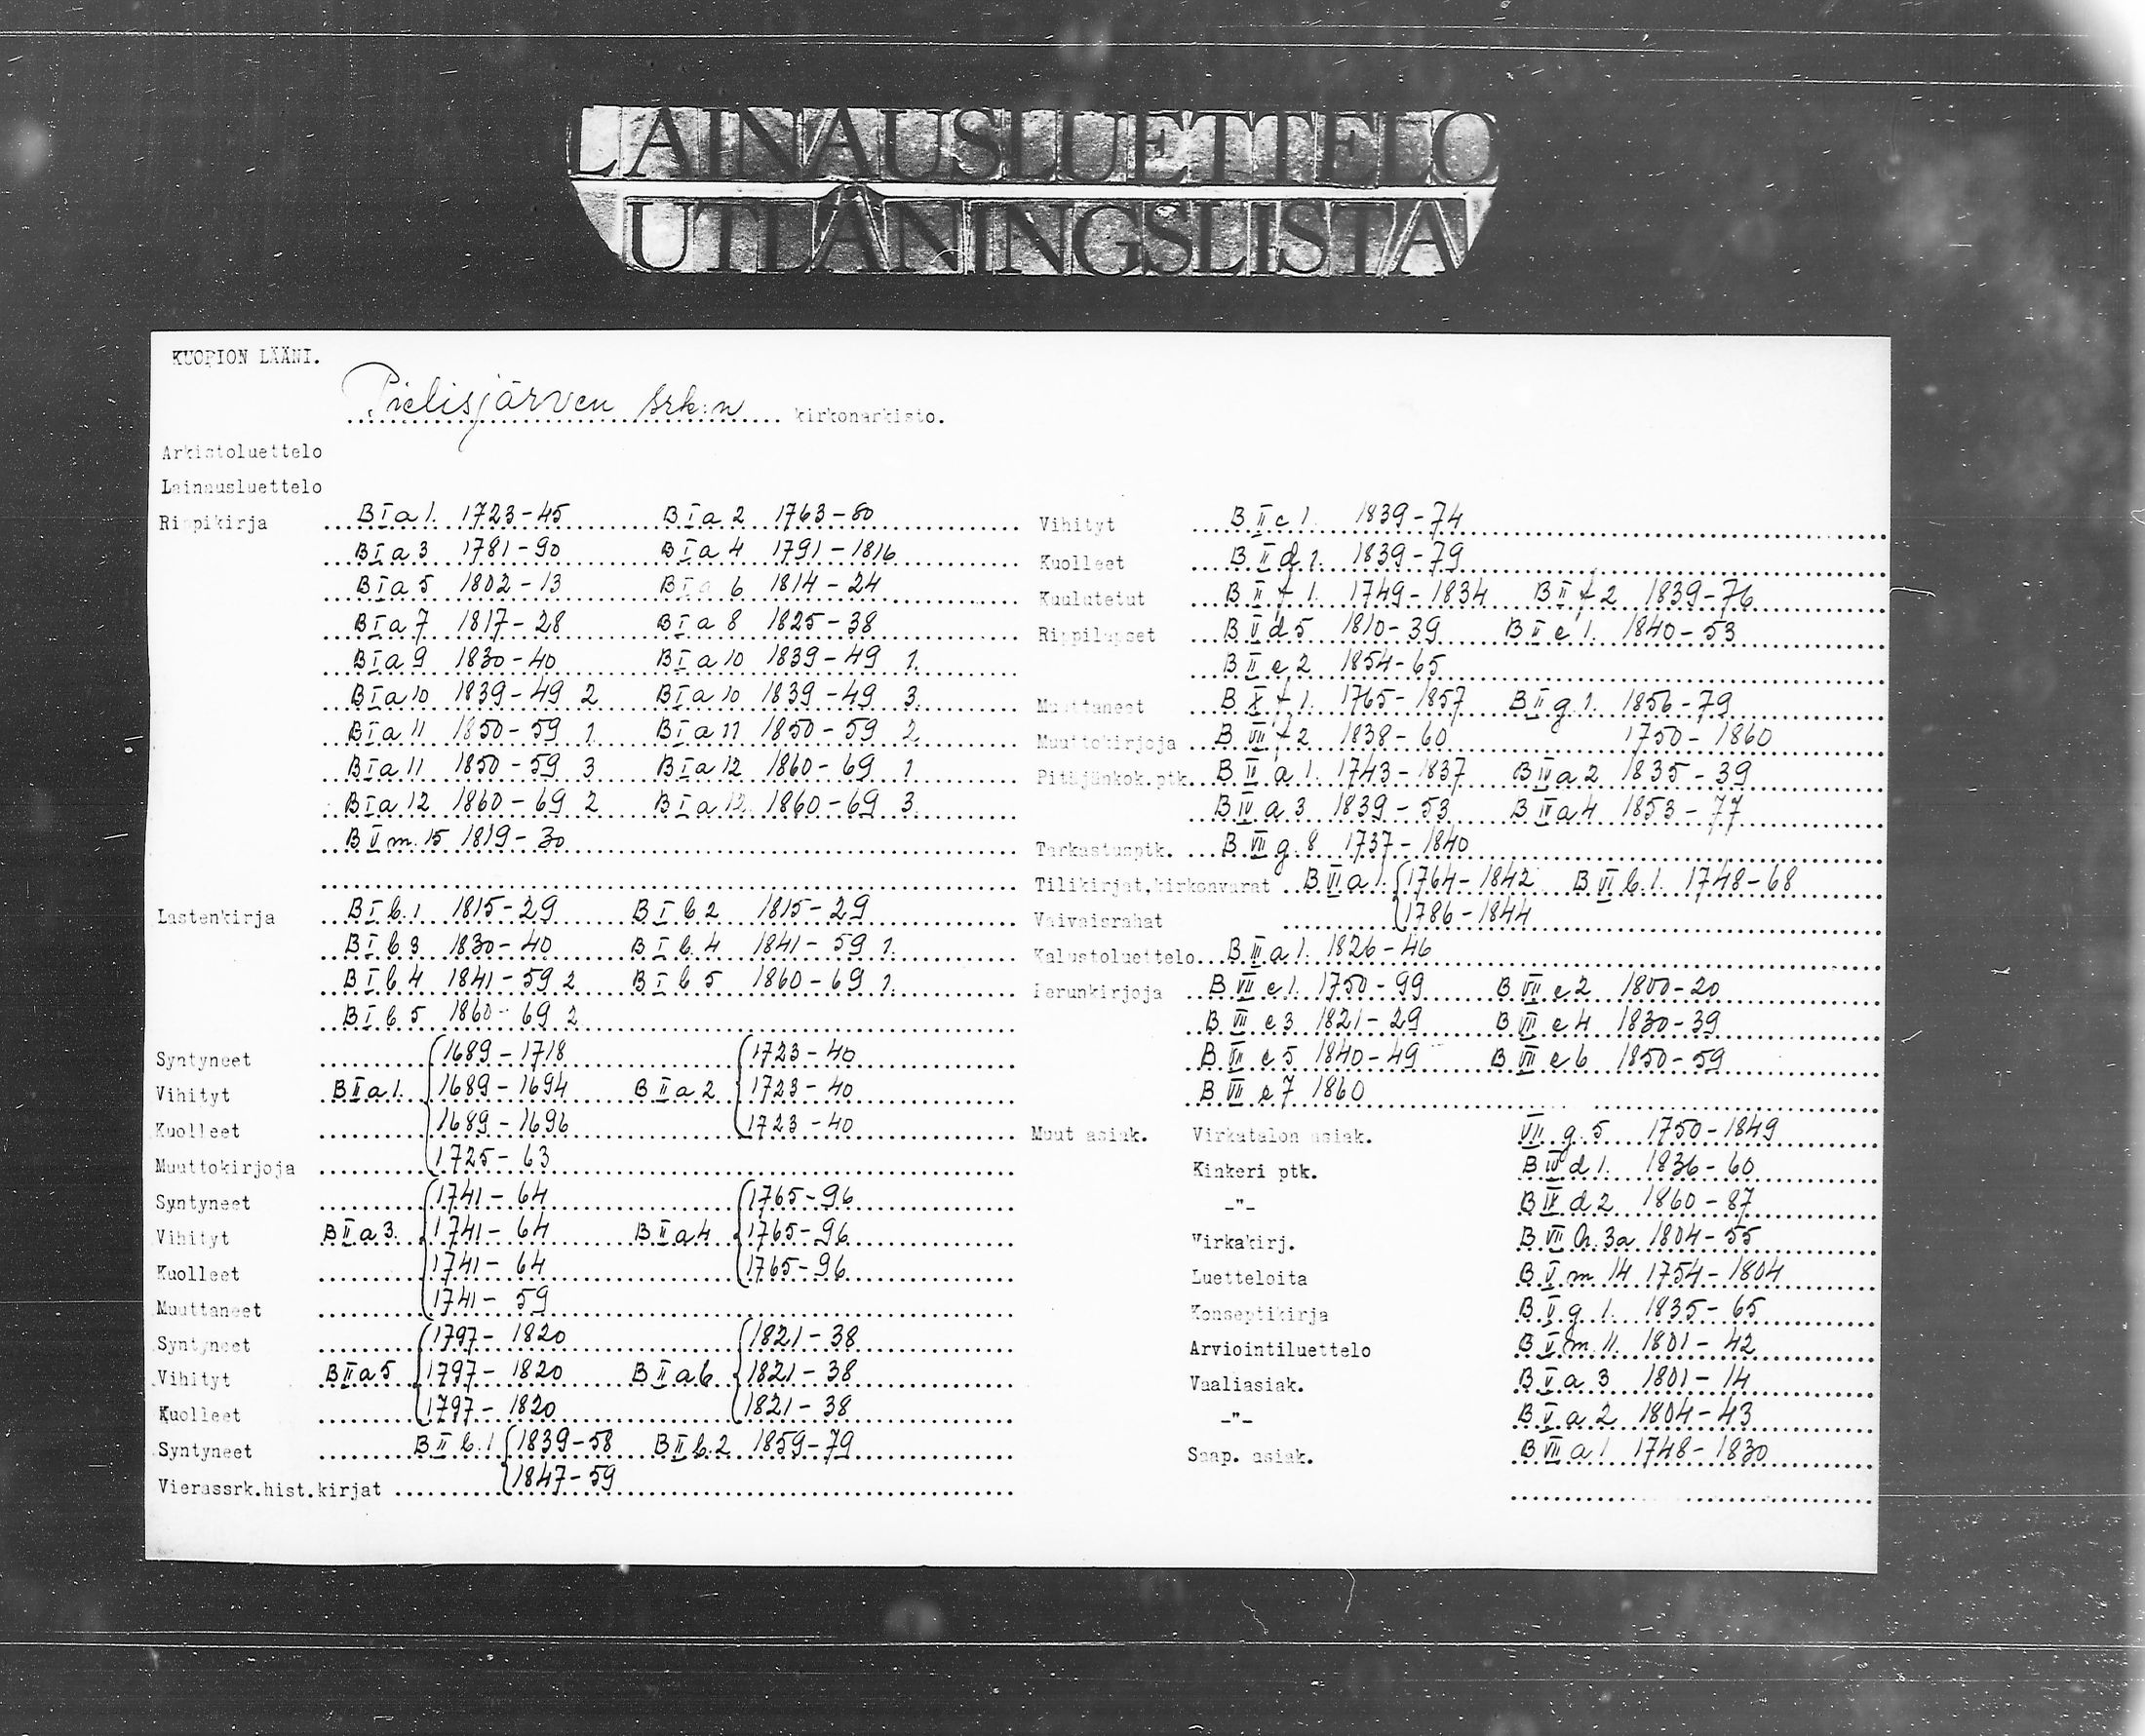 LAINAUSLUETTELO
UTLÅNINGSLISTA
KUOPION LÄÄNI.
Pielisjärven srk:n kirkonarkisto.
Arkistoluettelo
Lainausluettelo
Rippikirja B I a 1. 1723-45 B I a 2 1763-80
B I a 3 1781-90 B I a 4 1791-1816
B I a 5 1802-13 B I a 6 1814-24
B I a 7 1817-28 B I a 8 1825-38
B I a 9 1830-40 B I a 10 1839-49 1.
B I a 10 1839-49 2 B I a 10 1839-49 3.
B I a 11 1850-59 1 B I a 11 1850-59 2.
B I a 11 1850-59 3 B I a 12 1860-69 1
B I a 12 1860-69 2 B I a 12 1860-69 3.
B V m. 15 1819-30
Lastenkirja B I b. 1 1815-29 B I b 2 1815-29
B I b 3 1830-40 B I b. 4 1841-59 1.
B I b 4 1841-59 2 B I b 5 1860-69 1.
B I b 5 1860-69 2
Syntyneet 1689-1718 1723-40
Vihityt B II a 1. 1689-1694 B II a 2 1723-40
Kuolleet 1689-1696 1723-40
Muuttokirjoja 1725-63
Syntyneet 1741-64 1765-96
Vihityt B II a 3. 1741-64 B II a 4 1765-96
Kuolleet 1741-64 1765-96
Muuttaneet 1741-59
Syntyneet 1797-1820 1821-38
Vihityt B II a 5 1797-1820 B II a 6 1821-38
Kuolleet 1797-1820 1821-38
Syntyneet B II b. 1 1839-58 B II b. 2 1859-79
Vierassrk.hist.kirjat 1847-59
Vihityt B II c 1. 1839-74
Kuolleet B II d 1. 1839-79
Kuulutetut B II f 1. 1749-1834 B II f 2 1839-76
Rippilapset B V d 5 1810-39 B II e 1. 1840-53
B II e 2 1854-65
Muuttaneet B f 1. 1765-1857 B II g. 1. 1856-79
Muuttokirjoja B VII f 2 1838-60 1750-1860
Pitäjänkok.ptk. B a 1. 1743-1837 B IV a 2 1835-39
B IV a 3 1839-53 B IV a 4 1853-77
Tarkastusptk. B VII g. 8 1737-1840
Tilikirjat, kirkonvarat B VI a 1. 1764-1842 B VI b. 1. 1748-68
Vaivaisrahat 1786-1844
Kalustoluettelo B III a 1. 1826-46
Perunkirjoja B VII e 1. 1750-99 B VII e 2 1800-20
B VII e 3 1821-29 B VII e 4 1830-39
B VII e 5 1840-49 B VII e 6 1850-59
B VII e 7 1860
Muut asiak. Virkatalon asiak. VII g. 5 1750-1849
Kinkeri ptk. B IV d 1. 1836-60
-"- B IV d 2 1860-87
Virkakirj. B VII h. 3a 1804-55
Luetteloita B V m 14 1754-1804
Konseptikirja B V g. 1. 1835-65
Arviointiluettelo B V m. 11. 1801-42
Vaaliasiak. B V a 3 1801-14
-"- B V a 2 1804-43
Saap. asiak. B VII a 1. 1748-1830